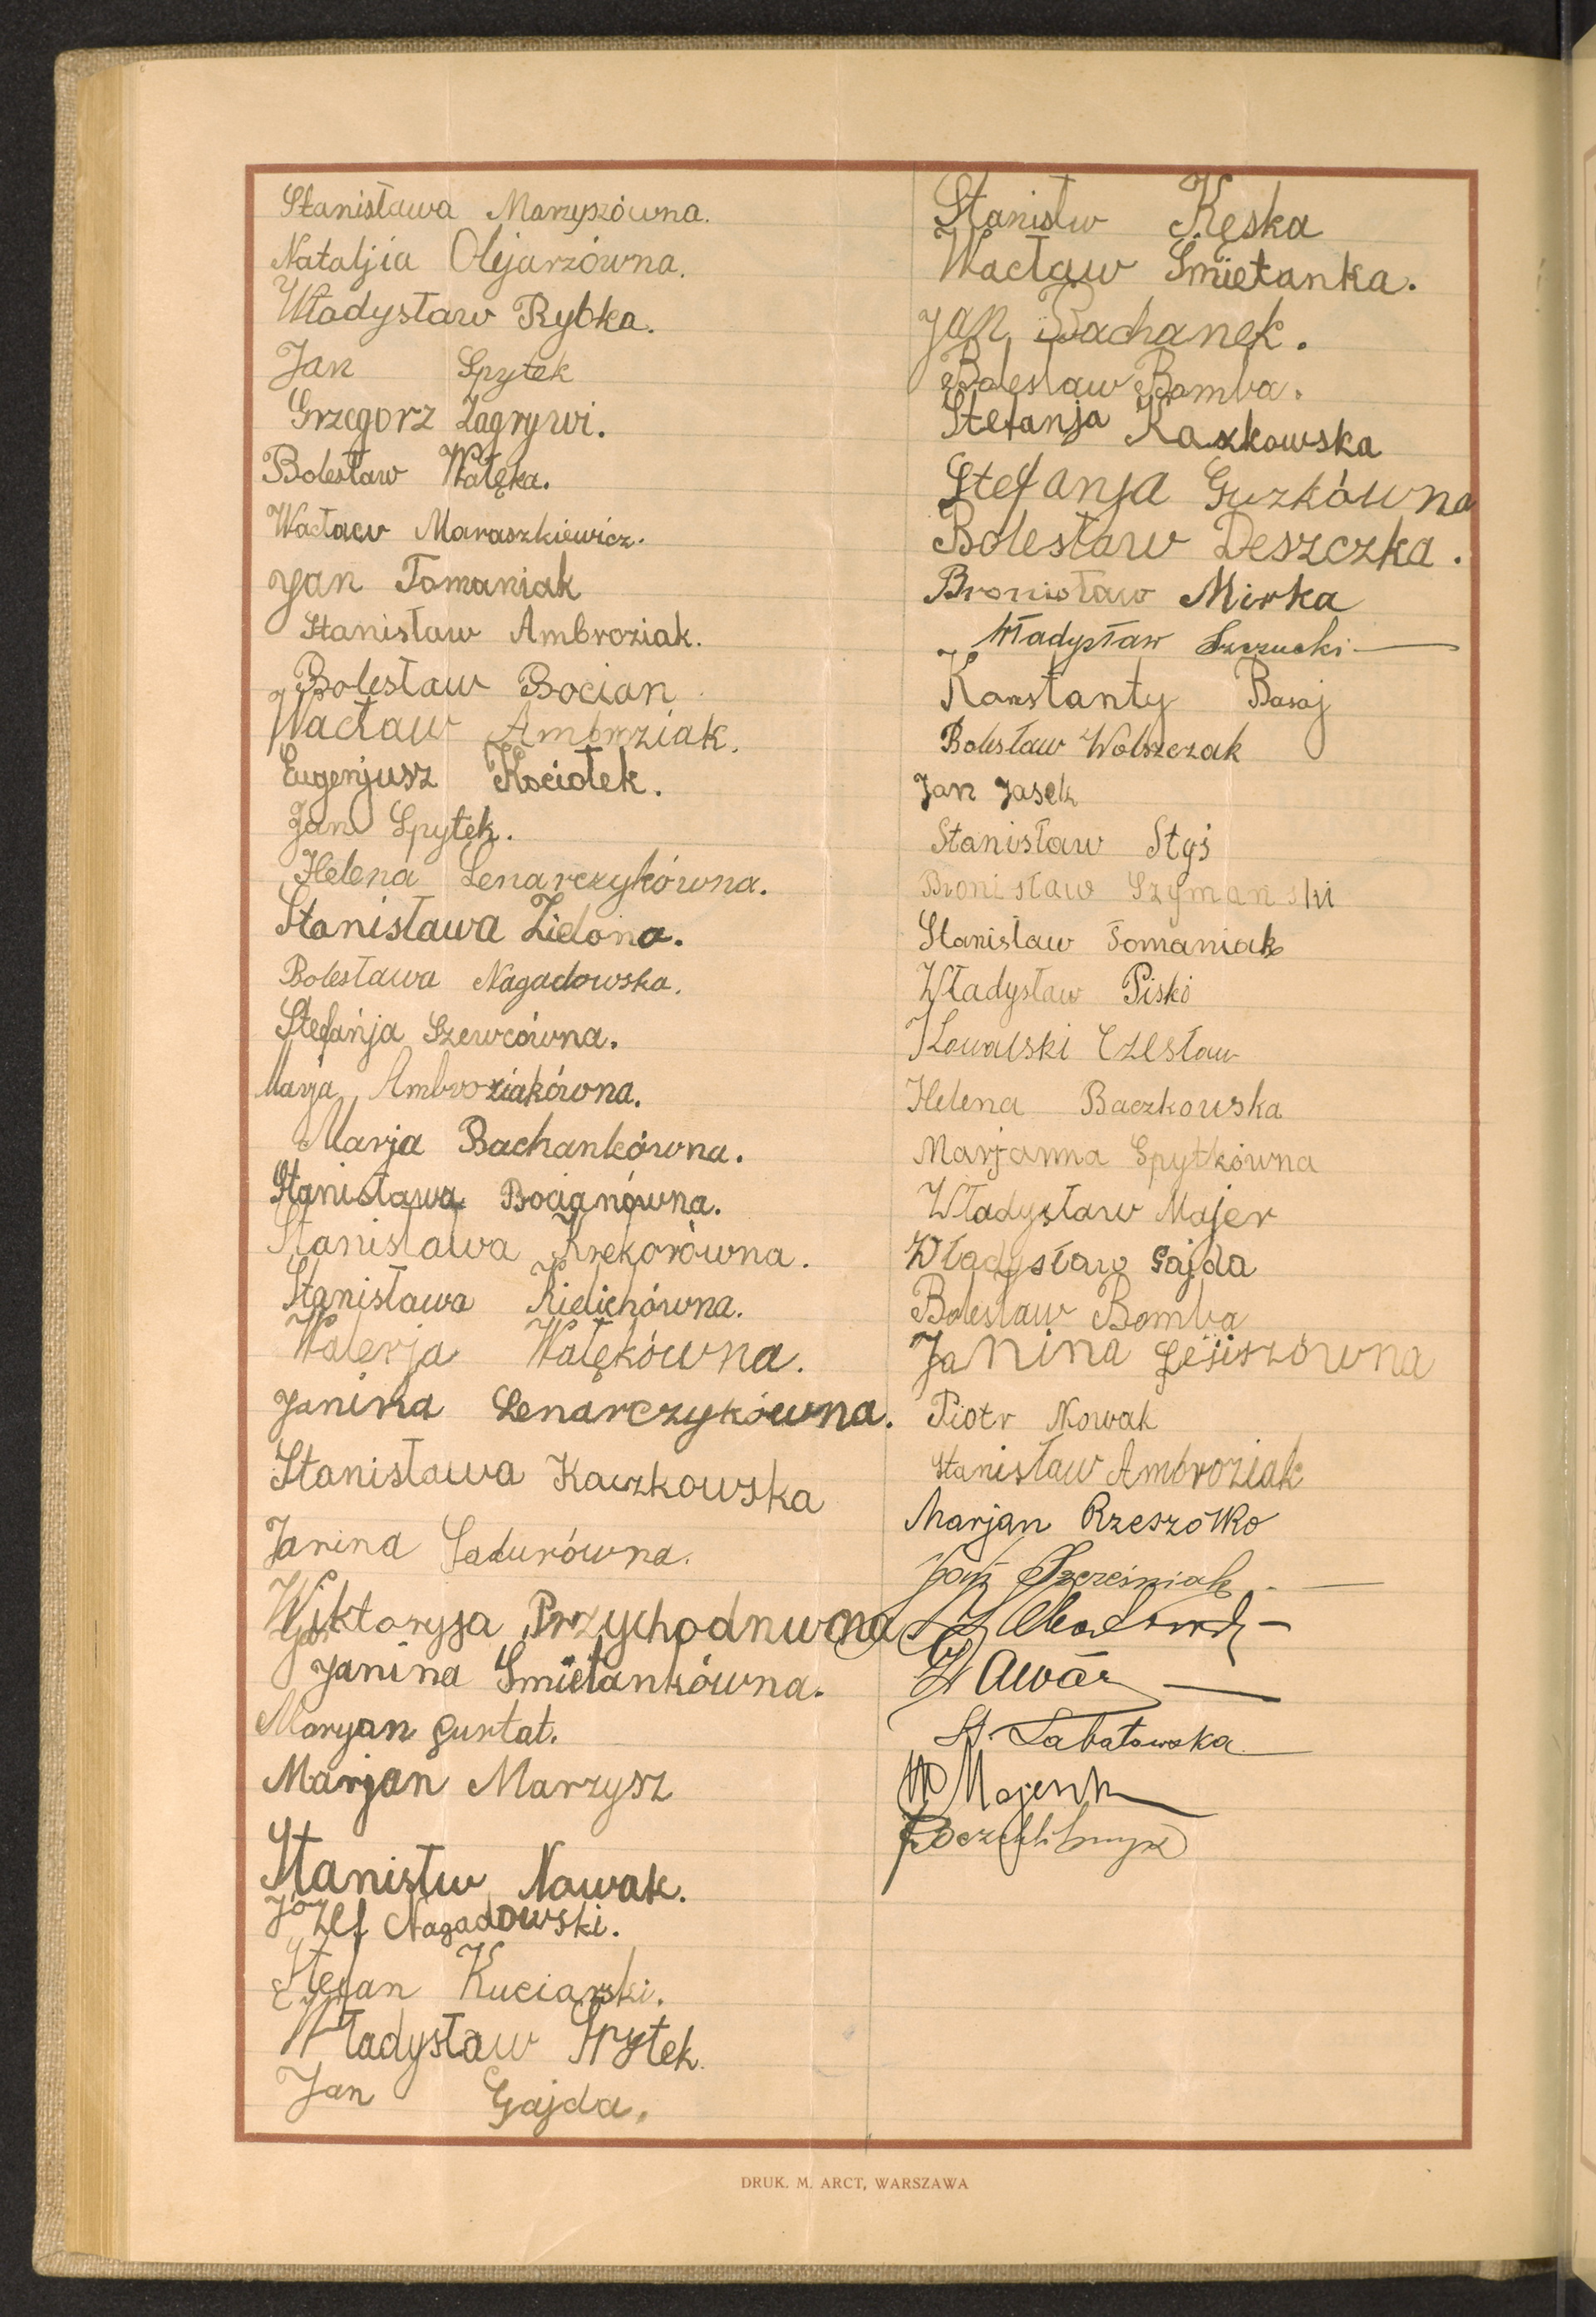 Stanisława Marzyszówna.
Nataljia Olejarzówna.
Władysław Rybka.
Jan Spytek
Grzegorz Zagrywi.
Bolesław Wałęka.
Wacław Maraszkiewicz.
Jan Tomaniak
Stanisław Ambroziak.
Bolesław Bocian
Wacław Ambrziak.
Eugenjusz Kościołek.
Jan Spytek.
Helena Lenarczykówna.
Stanisława Zielona.
Bolesława Nagadowska.
Stefańja Szewcówna.
Marja Ambroziakówna.
Marja Bachankówna.
Stanisława Bocianówna.
Stanisława Krekorówna.
Stanisława Kielichówna.
Walerja Wałękówna.
Janina Lenarczykówna.
Stanisława Kaczkowska
Janina Sadurówna.
Wiktoryja Przychodnwona
Janina Smietankówna.
Maryan Gurtat.
Marjan Marzysz
Stanisłw Nowak.
Józef Nagadowski.
Stefan Kuciarski.
Władysław Spytek.
Jan Gajda.
Stanisłw Kęska
Wacław Smietanka.
Jan Bachanek.
Bolesław Bomba.
Stefanja Kaczkowska
Stefanja Guzkówna
Bolesław Deszczka.
Bronisław Mirka
Władysław Szczucki
Konstanty Basaj
Bolesław Wolszczak
Jan Jasek
Stanisław Styś
Bronisław Szymanski
Stanisław Tomaniak
Władysław Pisko
Kowalski Czesław
Helena Baczkowska
Marjanna Spytkówna
Władysław Majer
Władysław Gajda
Bolesław Bomba
Janina
Piotr Nowak
Stanisław Ambroziak
Marjan Rzeszotko
Jan Szcześniak
St. Labatowska
W Majer
DRUK. M. ARCT, WARSZAWA